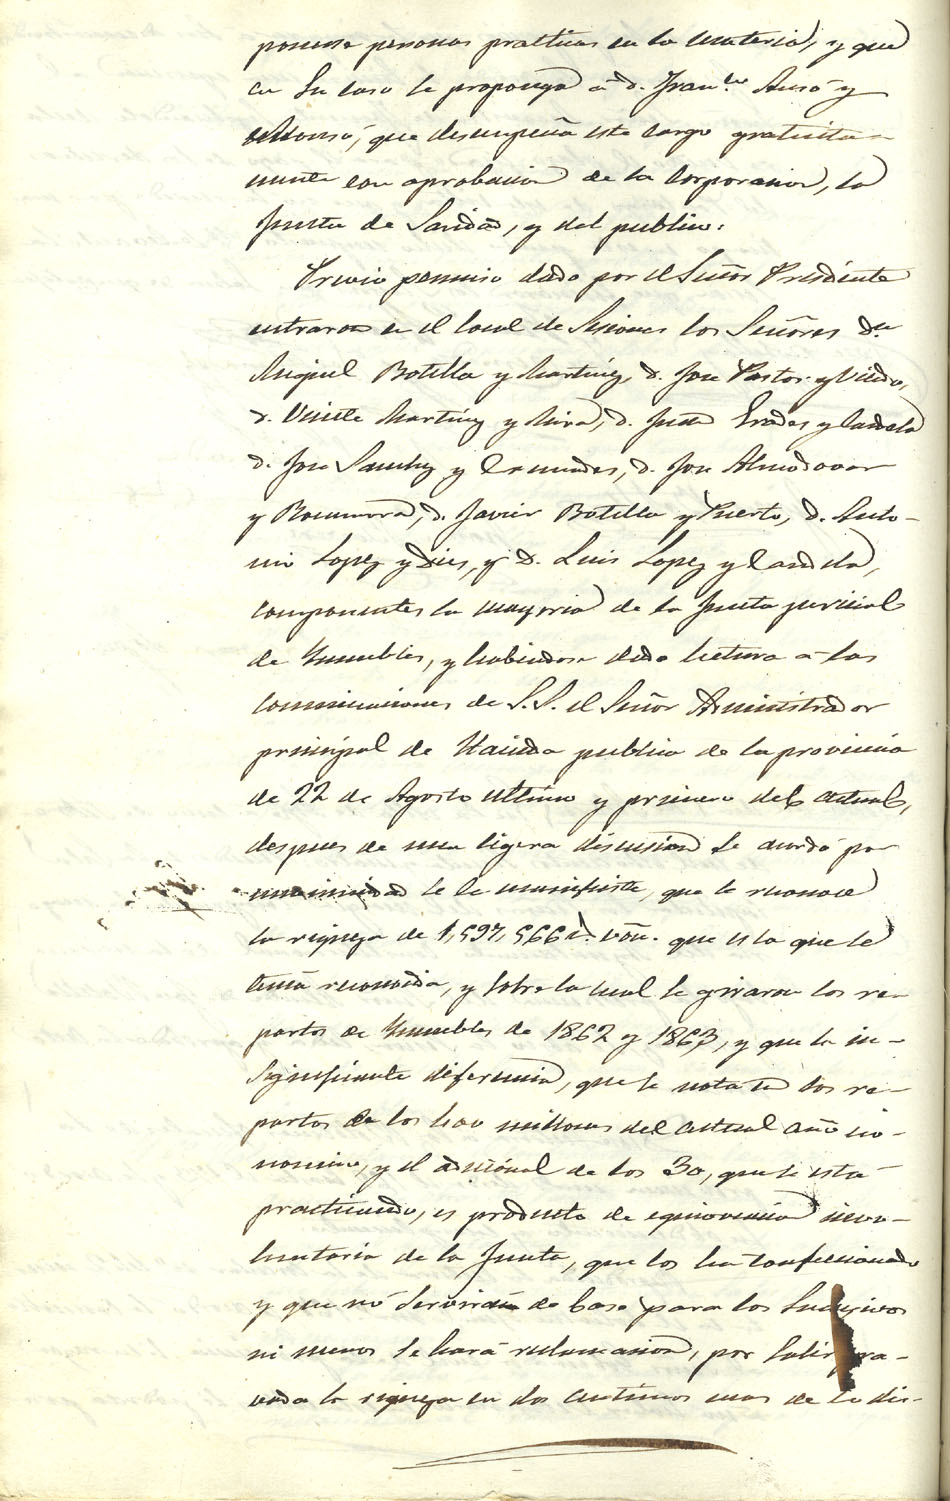 ponerse personas practicas en la materia, y que
en su caso se proponga á d. Fran.co Ausó y
, que desempeña este cargo gratuita-
mente con aprobacion de la Corporacion, la
Junta de Sanidad, y del publico.
Previo permiso dado por el Señor Presidente
entraron en el local de Sesiones los Señores Dn.
Miguel Botella y Martinez, d. Jose Pastor y
d. Vicente Martinez y Mira, d. Juan y Candela
d. Jose Sanchez y , d. Jose Almodovar
y Rocamora, d. Javier Botella y Puerto, d. Anto-
nio Lopez y Dies, y d. Luis Lopez y Candela,
componentes la mayoria de la Junta pericial
de Ynmuebles, y habiendose dado lectura á las
comunicaciones de S.S. el Señor Administrador
principal de Hacienda publica de la provincia
de 22 de Agosto ultimo y primero del actual,
despues de una ligera discusion se acordó por
unanimidad se le manifieste, que se reconoce
la riqueza de 1,597,566 r.s von. que es la que se
tenia reconocida, y sobre la cual se giraron los re-
partos de Ynmuebles de 1862 y 1863, y que la in-
significante diferencia, que se nota en los re-
partos de los 400 millones del actual año eco-
nomico, y el adicional de los 30, que se está
practicando, es producto de equivocacion invo-
luntaria de la Junta, que los ha confeccionado
y que no servirán de base para los sucesivos
ni menos se hará reclamacion, por salir gra-
vada la riqueza en dos centimos mas de lo dis-